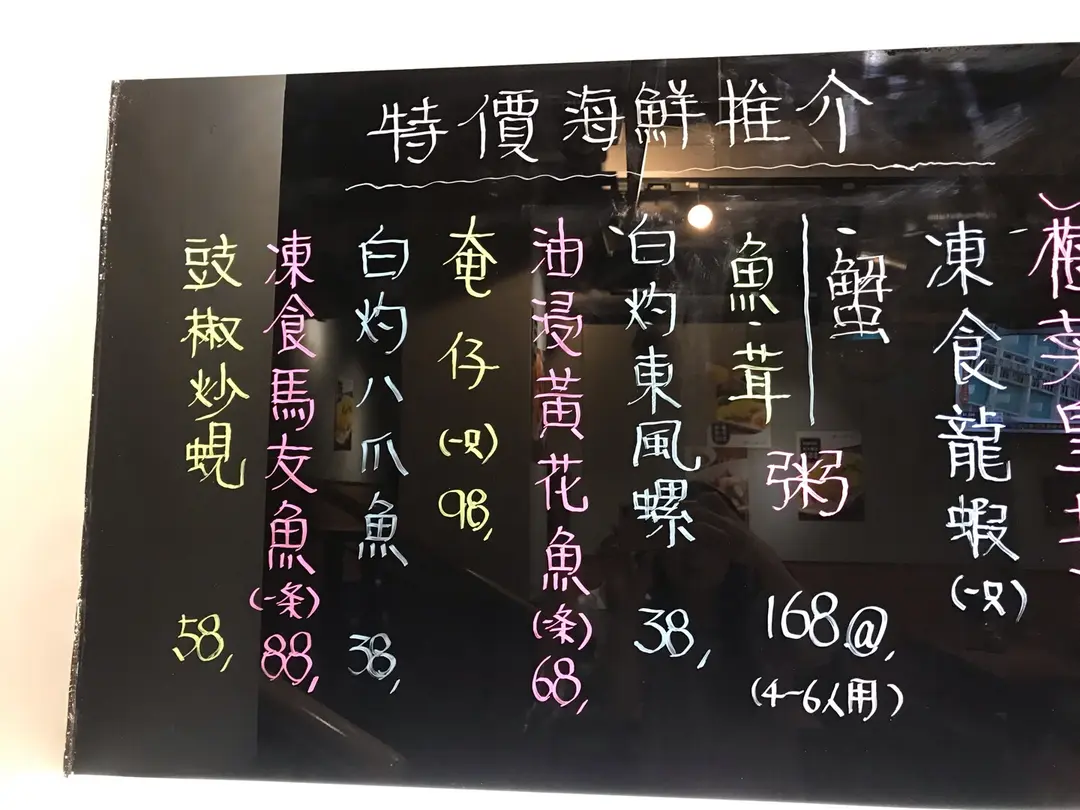 特價海鮮推介
凍食龍蝦(一只)
蟹
魚茸
粥
168@,
(4-6人用)
白灼東風螺 38,
油浸黃花魚(一条) 68,
奄仔(一只) 98,
白灼八爪魚 38,
凍食馬友魚(一条) 88,
豉椒炒蜆 58,